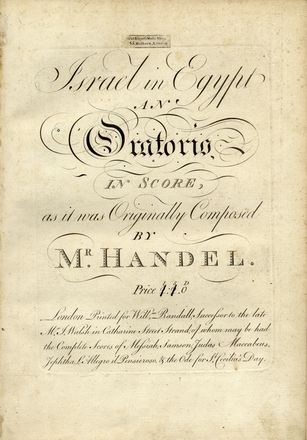 Israel in Egypt
AN
Oratorio,
IN SCORE,
as it was Originally Composed
BY
Mr. HANDEL.
Price
London Printed for Willm. Randall, Successor to the late
Mr. J. Walsh in Catharine Street Strand, of whom may be had
the Complete Scores of Messiah, Samson, Judas Maccabæus,
Jephtha, L'Allegro il Pensieroso, & the Ode for St. Cecilia's Day.